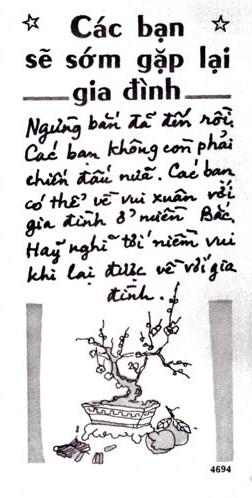 Các bạn
sẽ sớm gặp lại
gia đình
Ngừng bắn đã đến rồi.
Các bạn không còn phải
chiến đấu nữa. Các bạn
có thể về vui xuân với
gia đình ở miền Bắc.
Hãy nghĩ tới niềm vui
khi lại được về với gia
đình.
4694